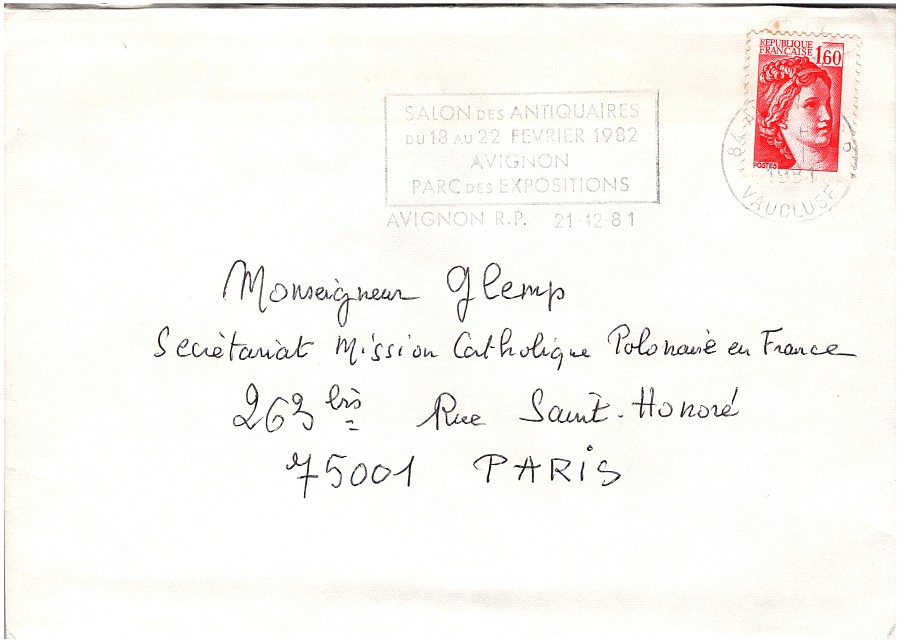 RÉPUBLIQUE
FRANÇAISE 1,60
POSTES
SALON DES ANTIQUAIRES
DU 18 AU 22 FEVRIER 1982
AVIGNON
PARC DES EXPOSITIONS
AVIGNON R.P. 21-12-81
84
1981
VAUCLUSE
Monseigneur Glemp
Secrétariat Mission Catholique Polonaise en France
263 bis Rue Saint-Honoré
75001 PARIS